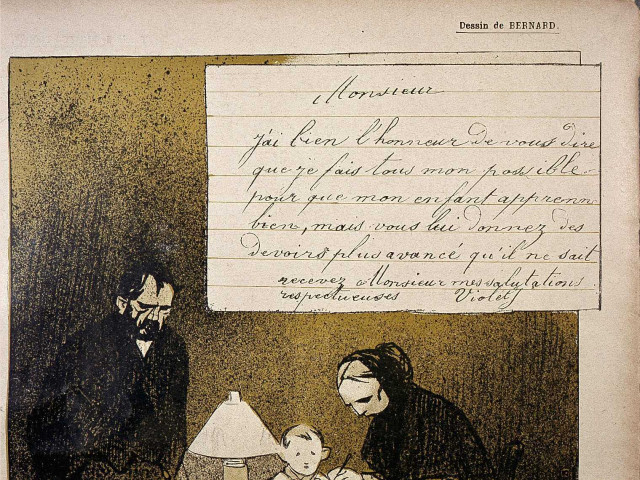 Dessin de BERNARD.
Monsieur
j'ai bien l'honneur de vous dire
que je fais tous mon possible
pour que mon enfant apprenn
bien, mais vous lui donnez des
devoirs plus avancé qu'il ne sait
recevez Monsieur mes salutations
respectueuses Violet